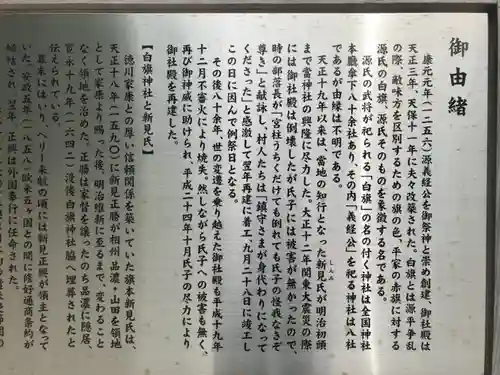 御由緒
康元元年(一二五六)源義経公を御祭神と崇め創建、御社殿は
天正三年、天保十一年に夫々改築された。白旗とは源平争乱
の際、敵味方を区別するための旗の色、平家の赤旗に対する
源氏の白旗、源氏そのものを象徴する名である。
源氏の武将が祀られる「白旗」の名の付く神社は全国神社
本廳傘下八十余社あり、その内「義経公」を祀る神社は八社
であるが由緒は不明である。
天正十九年以来は、当地の知行となった新見氏が明治初頭
まで当神社の興隆に尽力した。大正十二年関東大震災の際
には御社殿は倒壊したが氏子には被害が無かったので、
時の部落長が「宮柱うちくだけても倒れても氏子の怪我なきぞ
尊き」と献詠し、村人たちは「鎮守さまが身代わりになって
くださった」と感激して翌年再建に着工、九月二十八日に竣工し
この日に因んで例祭日となる。
その後八十余年、世の変遷を乗り越えた御社殿も平成十九年
十二月不審火により焼失。然しながら氏子への被害も無く、
再び御神威に助けられ、平成二十四年十月氏子の尽力により
御社殿を再建した。
【白旗神社と新見氏】
徳川家康との厚い信頼関係を築いていた旗本新見氏は、
天正十八年(一五九〇)に新見正勝が相州 品濃・山田を領地
として家康より賜った後、明治維新に至るまで、変わること
なく領地を治めた。正勝は家督を譲ったのち品濃に隠居、
寛永十九年(一六四二)没後白旗神社脇へ埋葬されたと
伝えられている。
幕末にはいり、ペリー来航の頃には新見正興が領主となって
いた。安政五年(一八五八)欧米五ヶ国との間に修好通商条約が
締結され、翌年、正興は外国奉行に任命された。